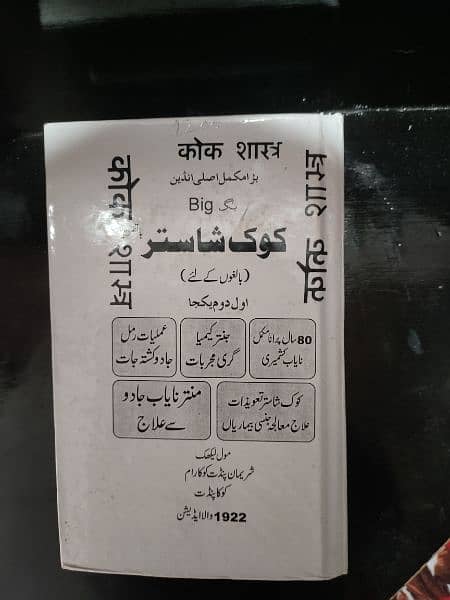 कोक शास्त्र
कोक शास्त्र
कोक शास्त्र
بڑا مکمل اصلی انڈین
بگ Big
کوک شاستر
(بالغوں کے لئے)
اول دوم یکجا
80 سال پرانا مکمل
نایاب کشمیری
جنتر کیمیا
گری مجربات
عملیات رمل
جادو کشتہ جات
کوک شاستر تعویذات
علاج معالجہ جنسی بیماریاں
منتر نایاب جادو
سے علاج
مول لیکھک
شریمان پنڈت کوکا رام
کوکا پنڈت
1922 والا ایڈیشن